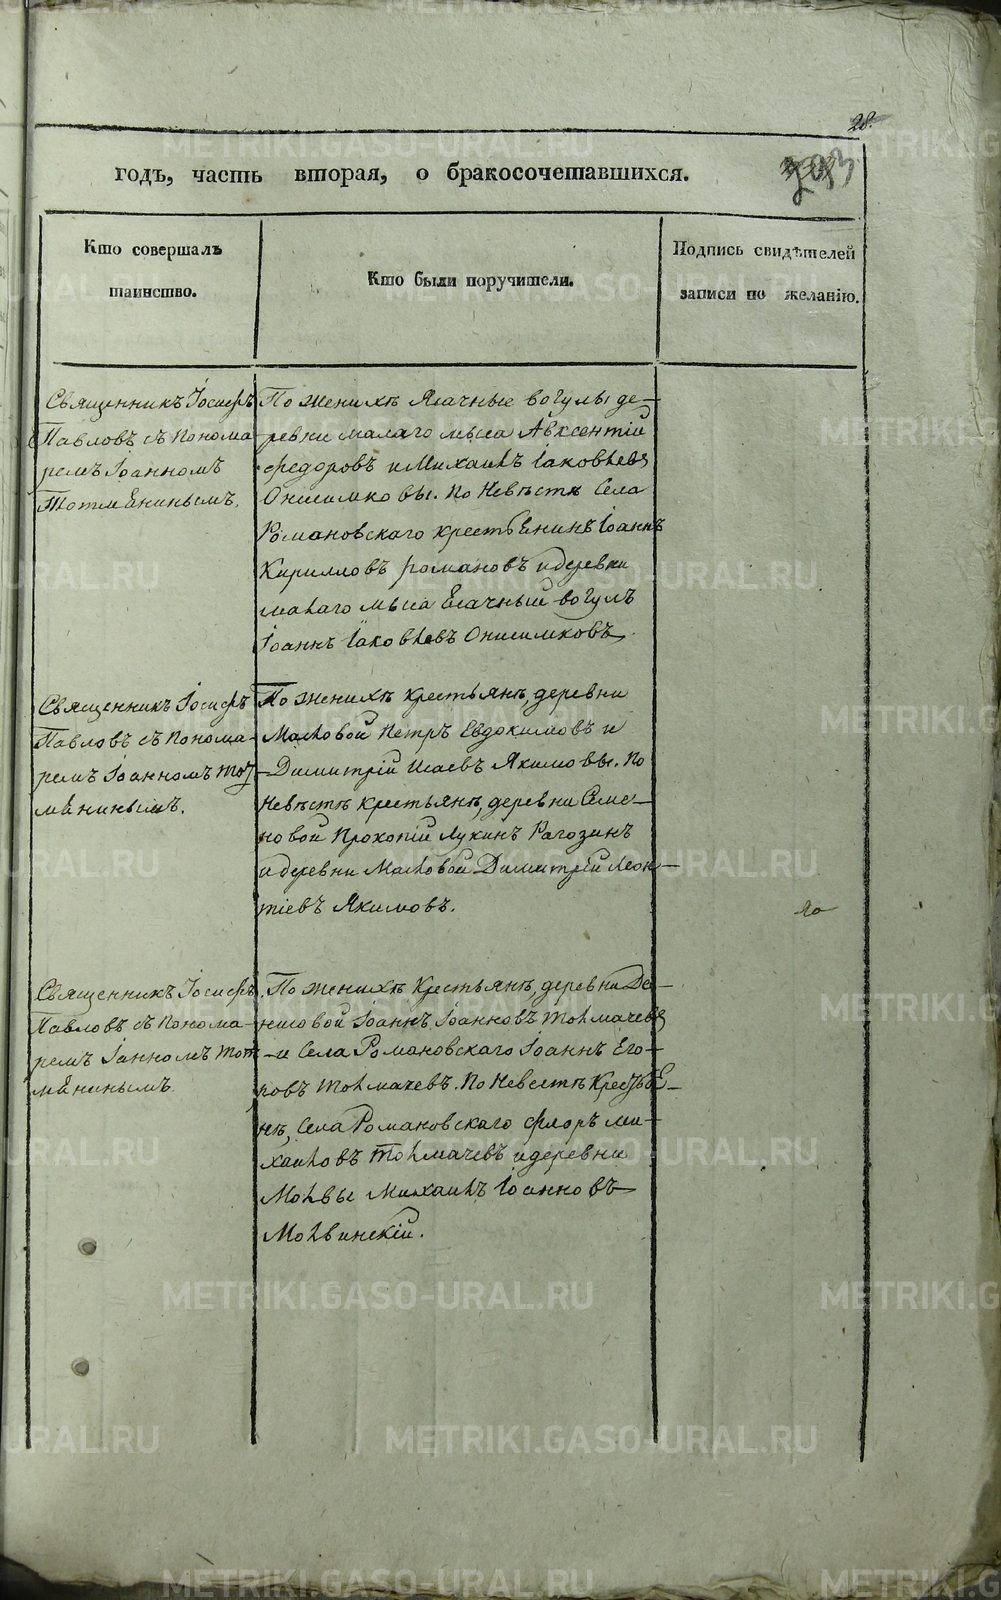 28.
годъ, часть вторая, о бракосочетавшихся.
Кто совершалъ
таинство.
Кто были поручители.
Подпись свидѣтелей
записи по желанію.
Священникъ Іосифъ
Павловъ съ понома-
ремъ Іоанномъ
Тотмѣнинымъ.
По женихѣ Ясачные вогулы де-
ревни малаго мыса Авксентій
Федоровъ и Михаилъ Іаковлевъ
Онисимковы. По Невѣстѣ Села
Романовскаго крестьѣнинъ Іоаннъ
Кирилловъ Романовъ и деревни
малаго мыса Есачный вогулъ
Іоаннъ Іаковлевъ Онисимковъ.
Священникъ Іосифъ
Павловъ съ понома-
ремъ Іоанномъ Тот-
мѣнинымъ.
По женихѣ крестьянѣ, деревни
Малковой Петръ Евдокимовъ и
Димитрій Исаевъ Якимовы. По
Невѣстѣ крестьянѣ, деревни Семе-
новой Прокопій Лукинъ Рагозинъ
и деревни Малковой Димитрій Леон-
тіевъ Якимовъ.
Священникъ Іосифъ
Павловъ съ понома-
ремъ Іанномъ Тот-
мѣнинымъ
По женихѣ Крестьянѣ, деревни Де-
нисовой Іоаннъ Іоанновъ Толмачевъ
и Села Романовскаго Іоаннъ Его-
ровъ Толмачевъ. По Невестѣ Крестьѣ-
нѣ, Села Романовскаго Флоръ Ми-
хаиловъ Толмачевъ и деревни
Молвы Михаилъ Іоанновъ
Молвинскій.
METRIKI.GASO-URAL.RU